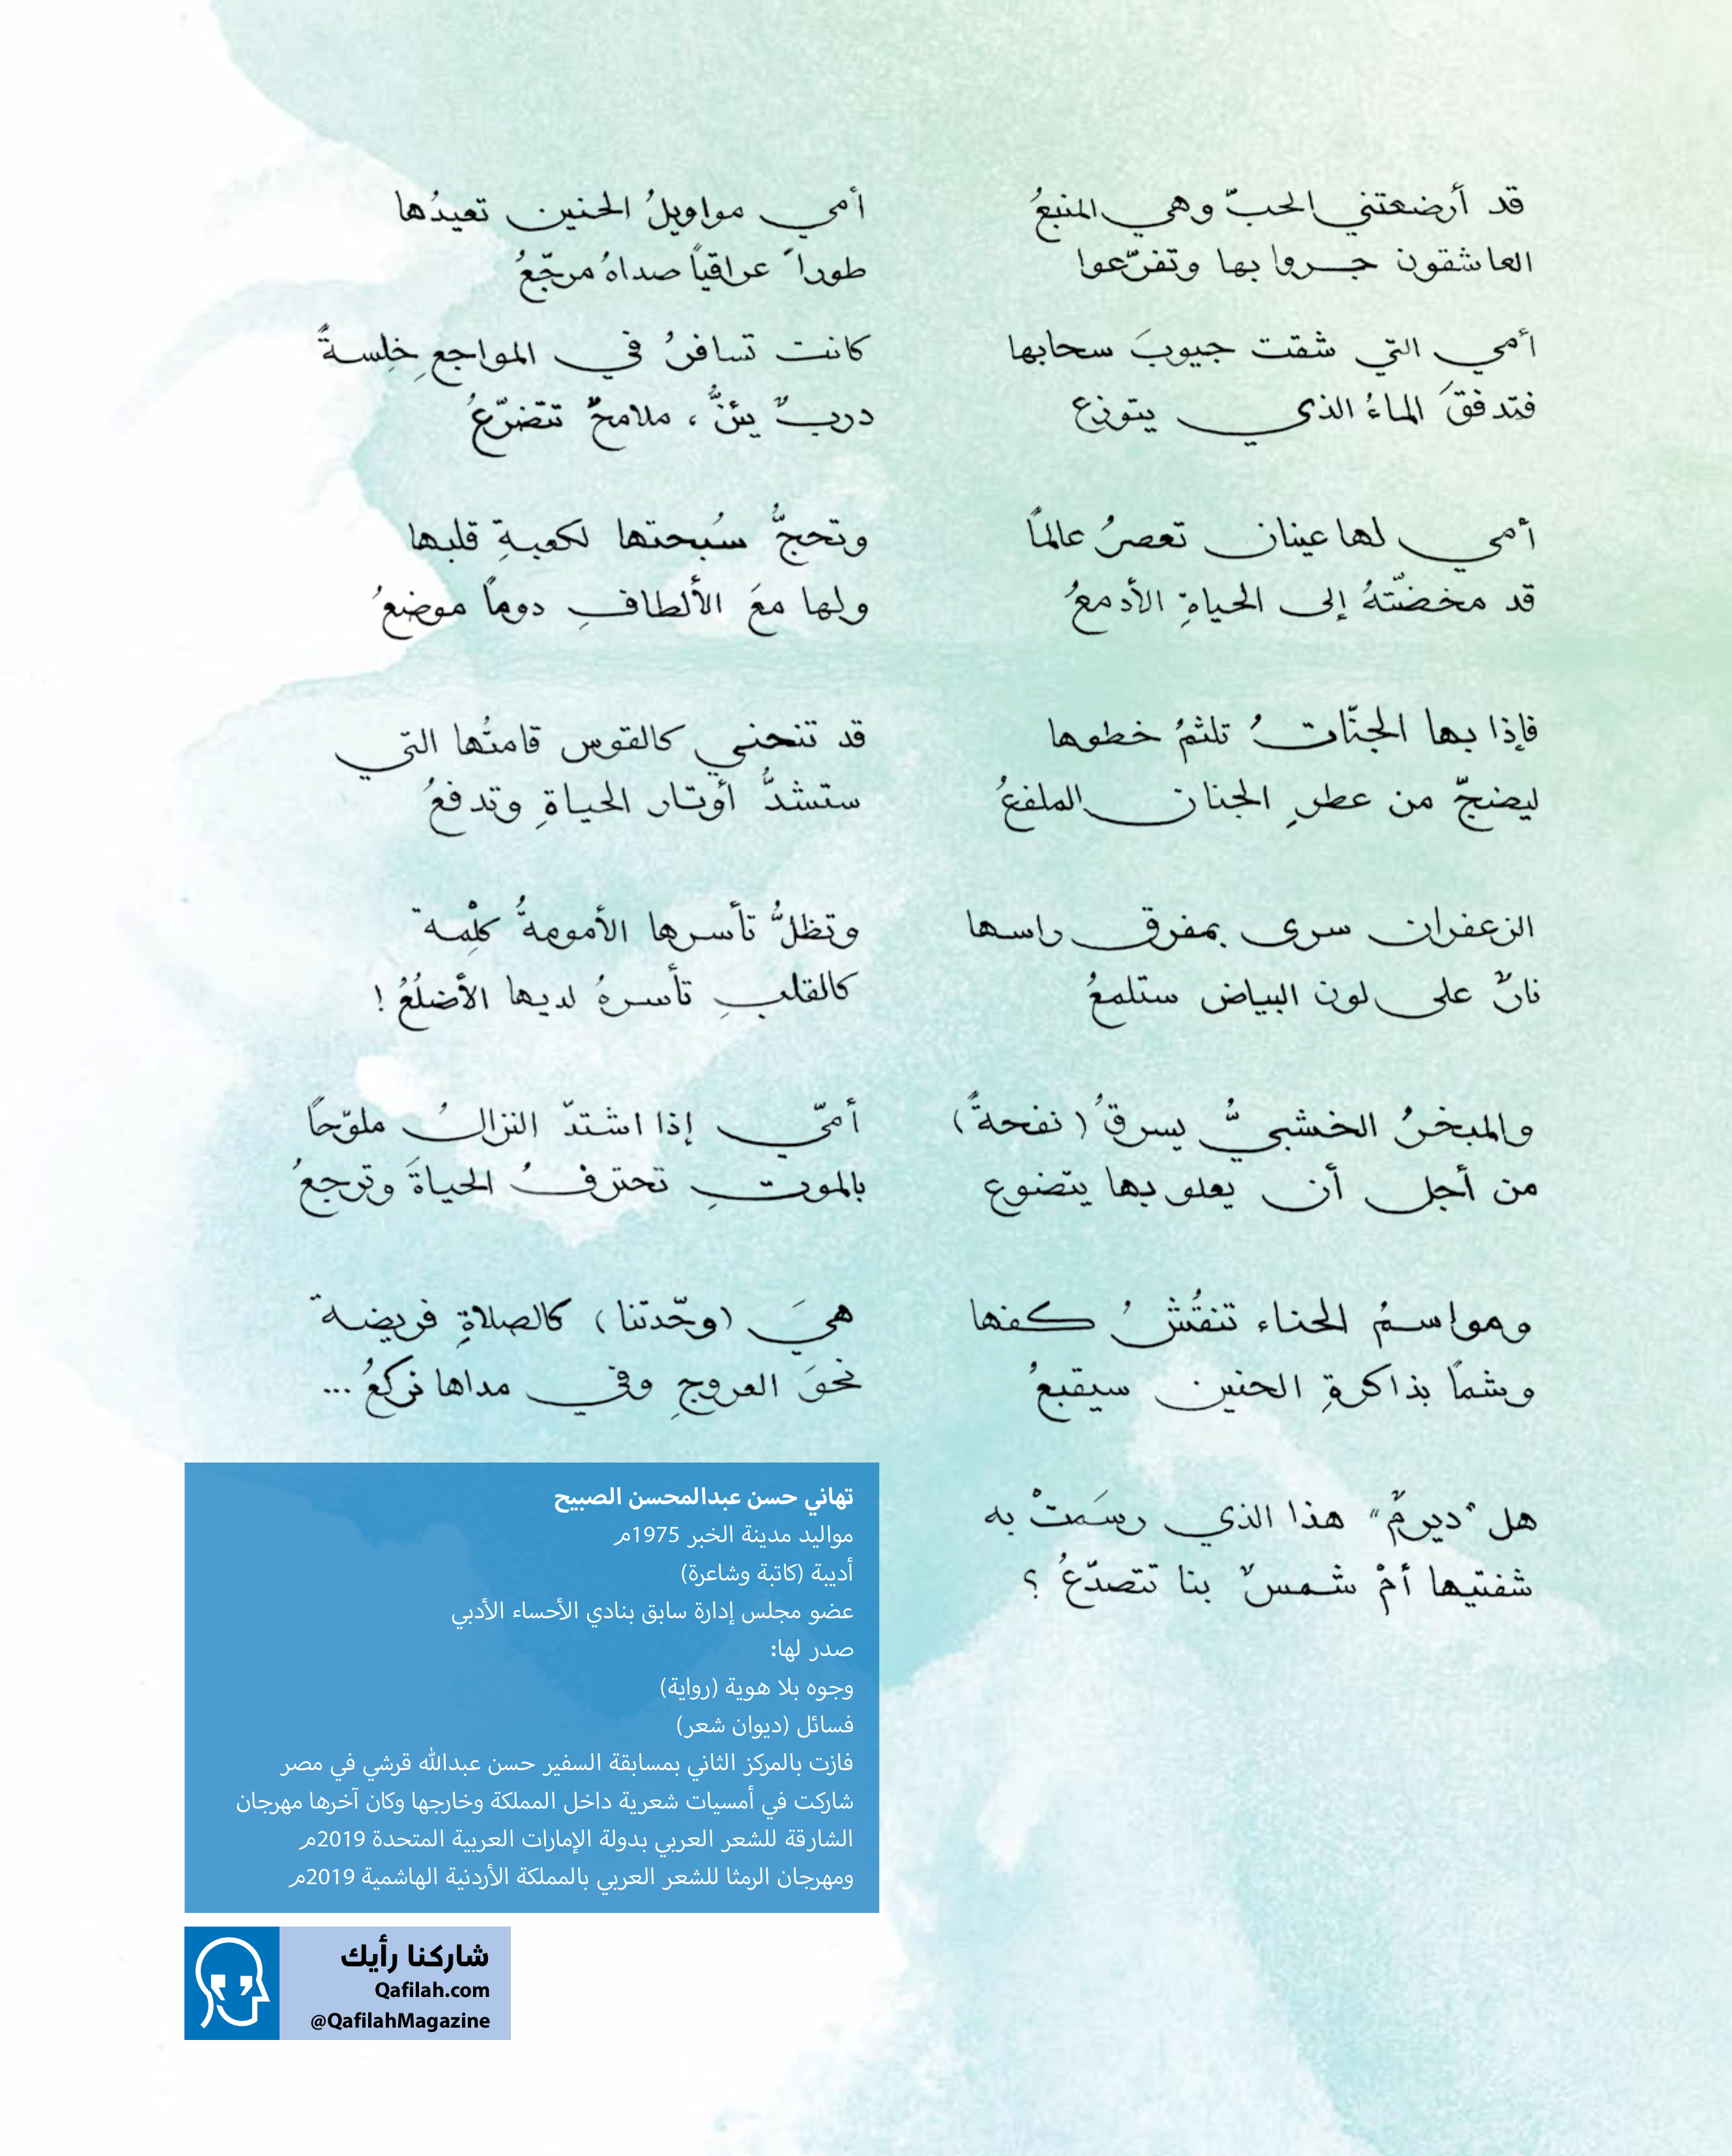 قد أرضعتني الحبّ وهي المنبعُ
العاشقون جروا بها وتفرّعوا
أمي التي شقت جيوبَ سحابها
فتدفقَ الماءُ الذي يتوزع
أمي لها عينان تعصرُ عالماً
قد مخضّتهُ إلى الحياةِ الأدمعُ
فإذا بها الجنّاتُ تلثمُ خطوها
ليضجّ من عطرِ الجنان الملفعُ
الزعفران سرى بمفرق راسها
نارٌ على لون البياض ستلمعُ
والمبخرُ الخشبيُّ يسرقُ (نفحةً)
من أجل أن يعلو بها يتضوع
ومواسمُ الحناء تنقُشُ كفها
وشماً بذاكرةِ الحنين سيقبعُ
هل "ديرمٌ" هذا الذي رسَمتْ به
شفتيها أمْ شمسٌ بنا تتصدّعُ ؟
أمي مواويلُ الحنين تعيدُها
طوراً عراقياً صداهُ مرجّعُ
كانت تسافرُ في المواجعِ خِلسةً
دربٌ يئنُّ ، ملامحٌ تتضرّعُ
وتحجُّ سُبحتها لكعبةِ قلبها
ولها معَ الألطافِ دوماً موضعُ
قد تنحني كالقوس قامتُها التي
ستشدُّ أوتار الحياةِ وتدفعُ
وتظلُّ تأسرها الأمومةُ كلْمِة
كالقلبِ تأسرهُ لديها الأضلُعُ !
أمّي إذا اشتدّ النزالُ ملوّحاً
بالموتِ تحترفُ الحياةَ وترجعُ
هيَ (وحّدتنا) كالصلاةِ فريضة
نحوَ العروجِ وفي مداها نركعُ ...
تهاني حسن عبدالمحسن الصبيح
مواليد مدينة الخبر 1975م
أديبة (كاتبة وشاعرة)
عضو مجلس إدارة سابق بنادي الأحساء الأدبي
صدر لها:
وجوه بلا هوية (رواية)
فسائل (ديوان شعر)
فازت بالمركز الثاني بمسابقة السفير حسن عبدالله قرشي في مصر
شاركت في أمسيات شعرية داخل المملكة وخارجها وكان آخرها مهرجان
الشارقة للشعر العربي بدولة الإمارات العربية المتحدة 2019م
ومهرجان الرمثا للشعر العربي بالمملكة الأردنية الهاشمية 2019م
شاركنا رأيك
Qafilah.com
@QafilahMagazine